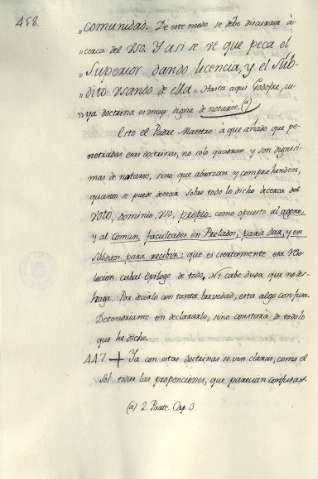 458.
„comunidad. De este modo se debe discurrir a-
„cerca del uso. Y assi se ve que peca el
„Superior dando licencia, y el Súb-
„dito usando de ella. Hasta aqui Godofre, cu-
ya doctrina es muy digna de notarse. (a)
Esto el Padre Maestro: a que añado que pe-
netradas esas doctrinas, no solo quadran y son dignissi-
mas de notarse, sino que abrazan, y comprehenden,
quanto se puede desear sobre todo lo dicho acerca del
voto, dominio, uso, propio como opuesto al
y al comun, facultades en Prelados para dar, y en
Súbditos para recibir: que es ciertamente una reso-
lucion cabal Epilogo de todo, ni cabe duda que no des-
haga. Por decirlo con tanta brevedad, esta algo confusa.
en declararlo, sino constara de todo lo
que he dicho.
447. Ya con estas doctrinas se ven claras, como el
Sol todas las proposiciones, que parecian confusas.
(a) 2. Part. Cap. 3